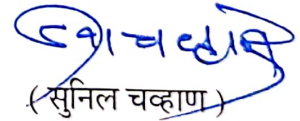 (सुनिल चव्हाण)